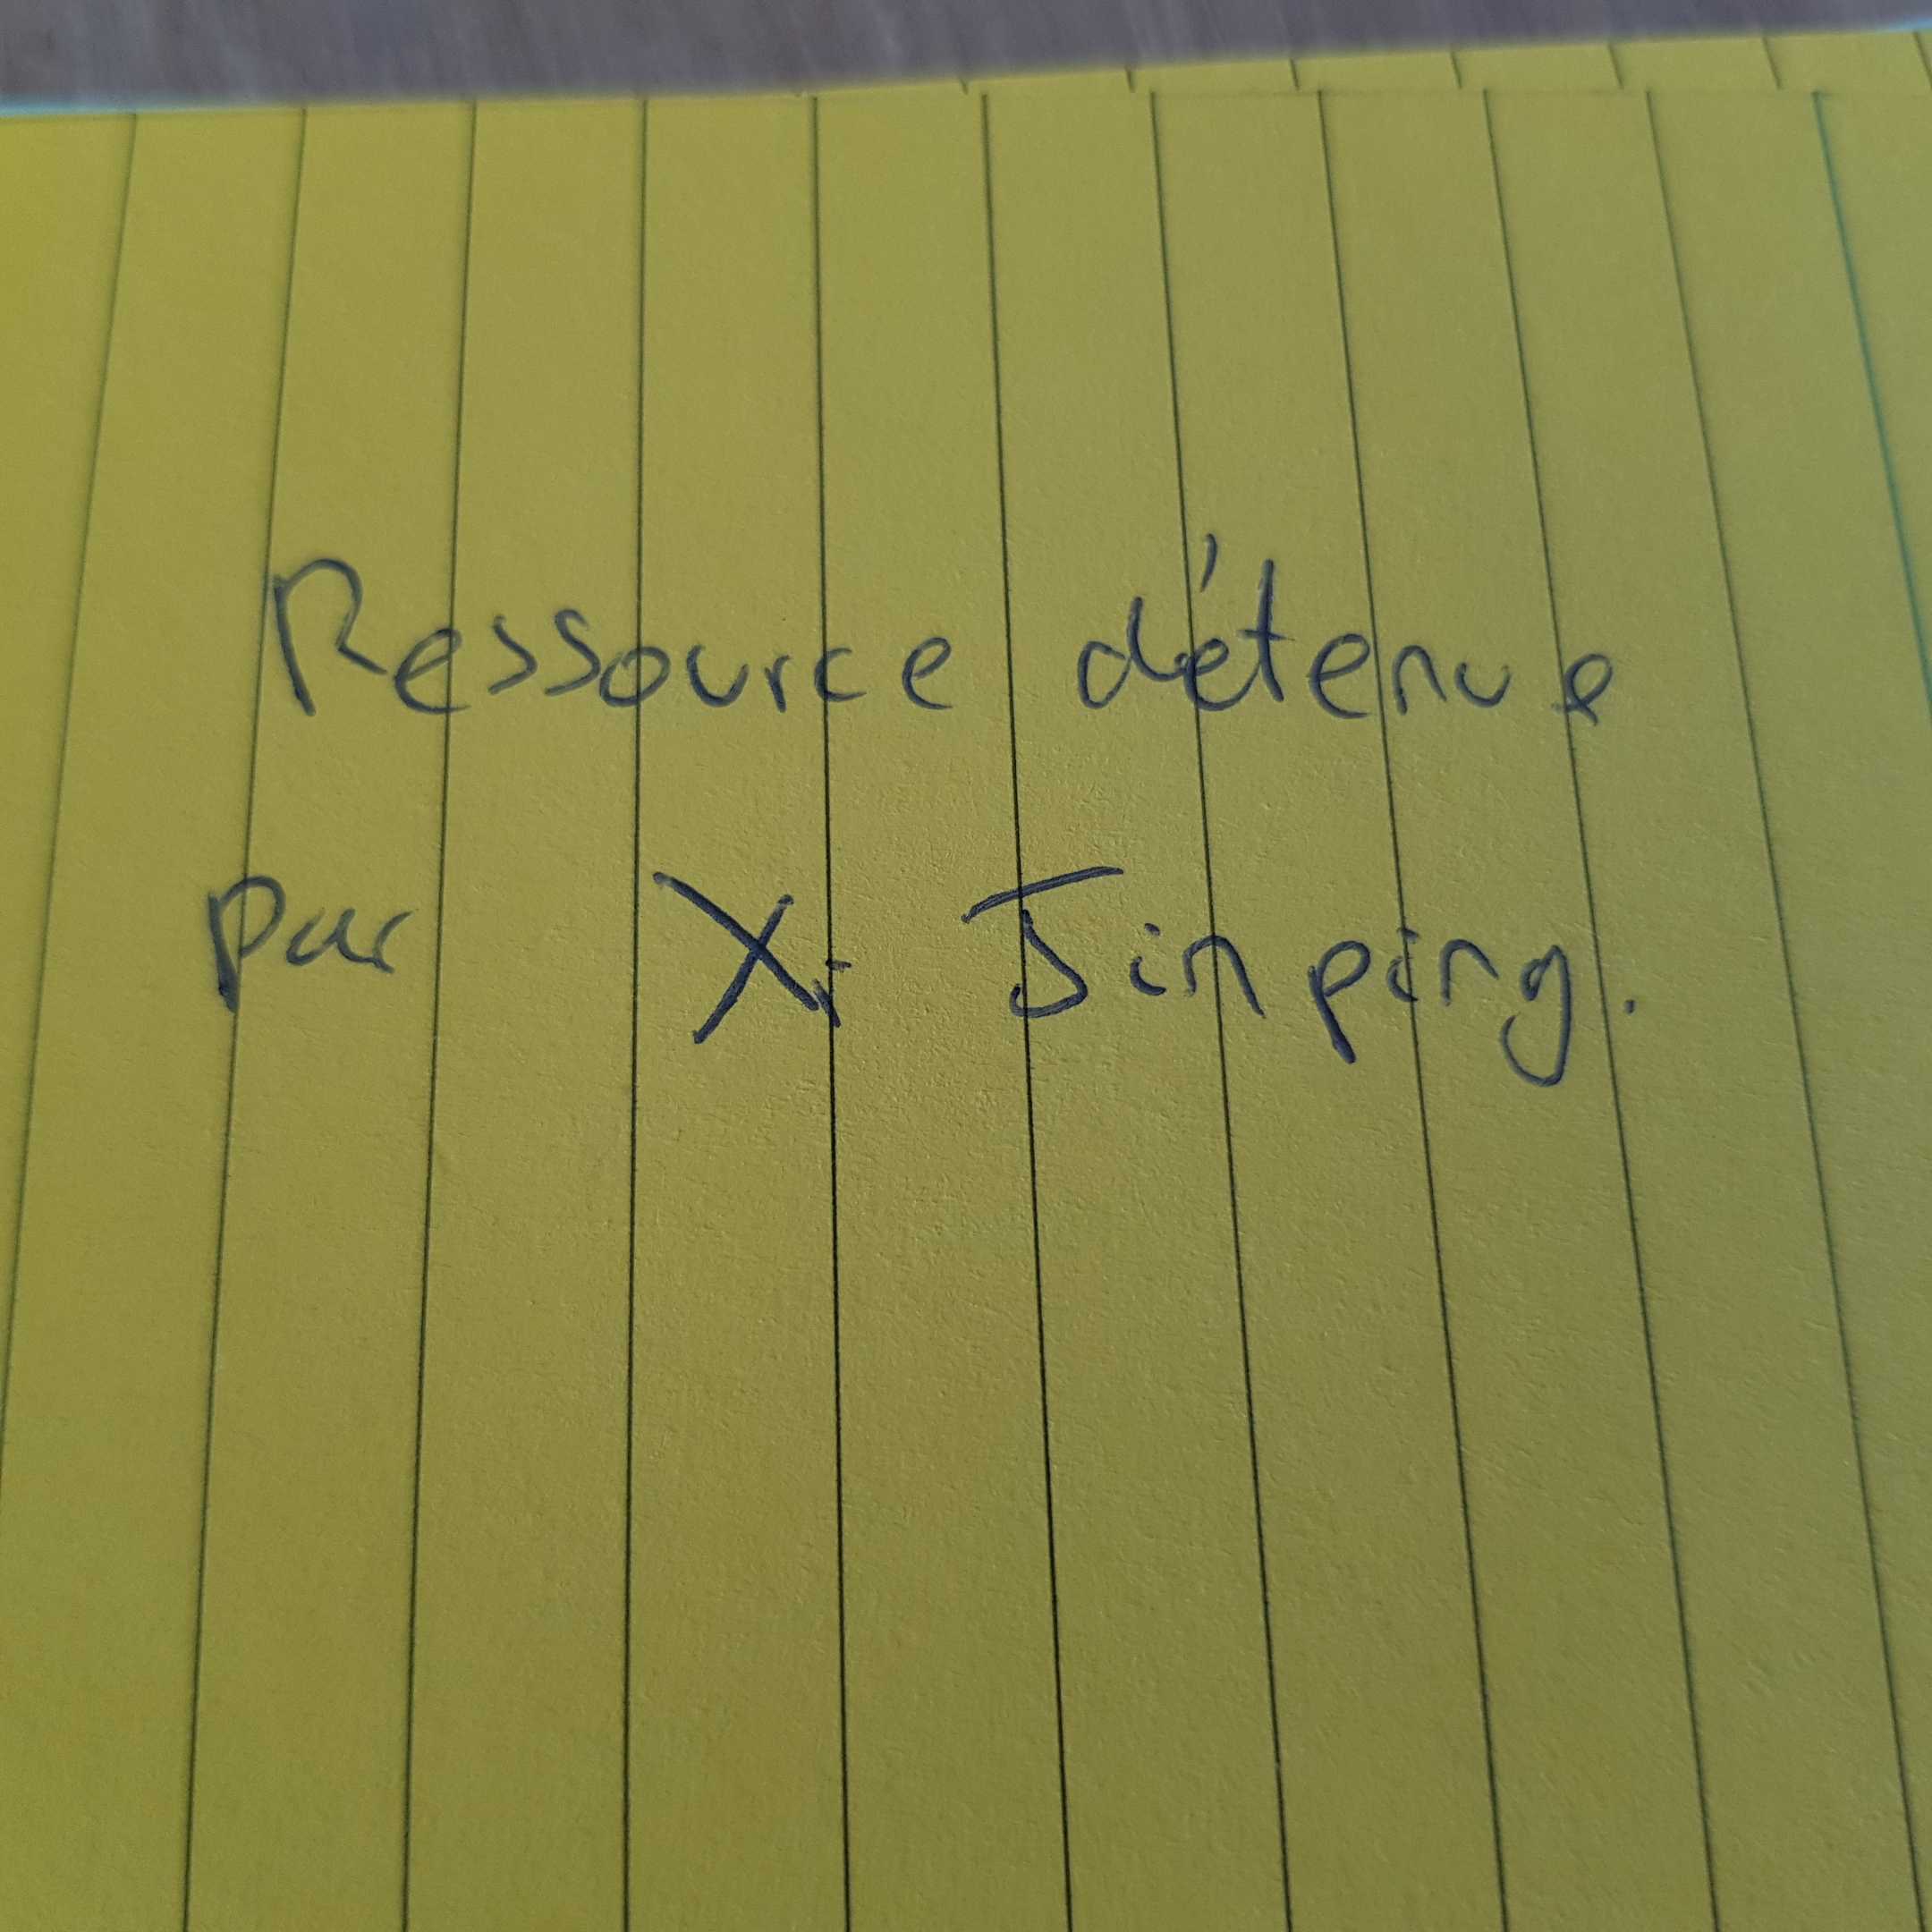 Ressource détenue
par Xi Jinping.